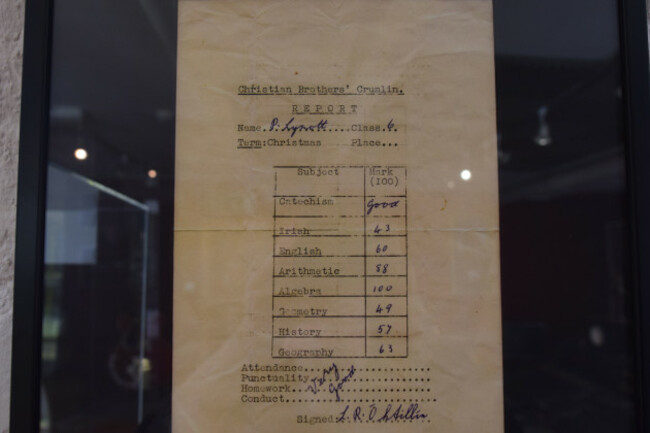 Christian Brothers' Crumlin.
REPORT
Name. P. Lynott....Class. 6.
Term: Christmas Place...
Subject Mark (100)
Catechism Good
Irish 43
English 60
Arithmetic 58
Algebra 100
Geometry 49
History 57
Geography 63
Attendance..................
Punctuality.................
Homework.. Very Good
Conduct.....................
Signed: L. R. Ó